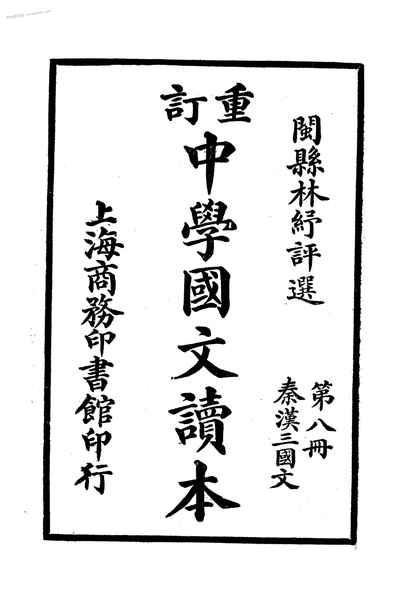 閩縣林紓評選
第八冊
秦漢三國文
重訂
中學國文讀本
上海商務印書館印行